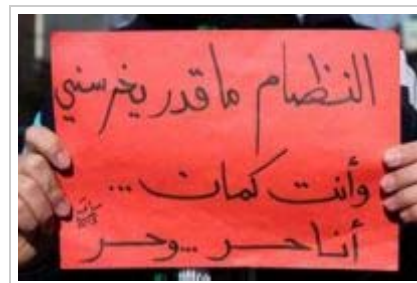 النظام ما قدر يخرسني
وأنت كمان ...
أنا حر ... وحر